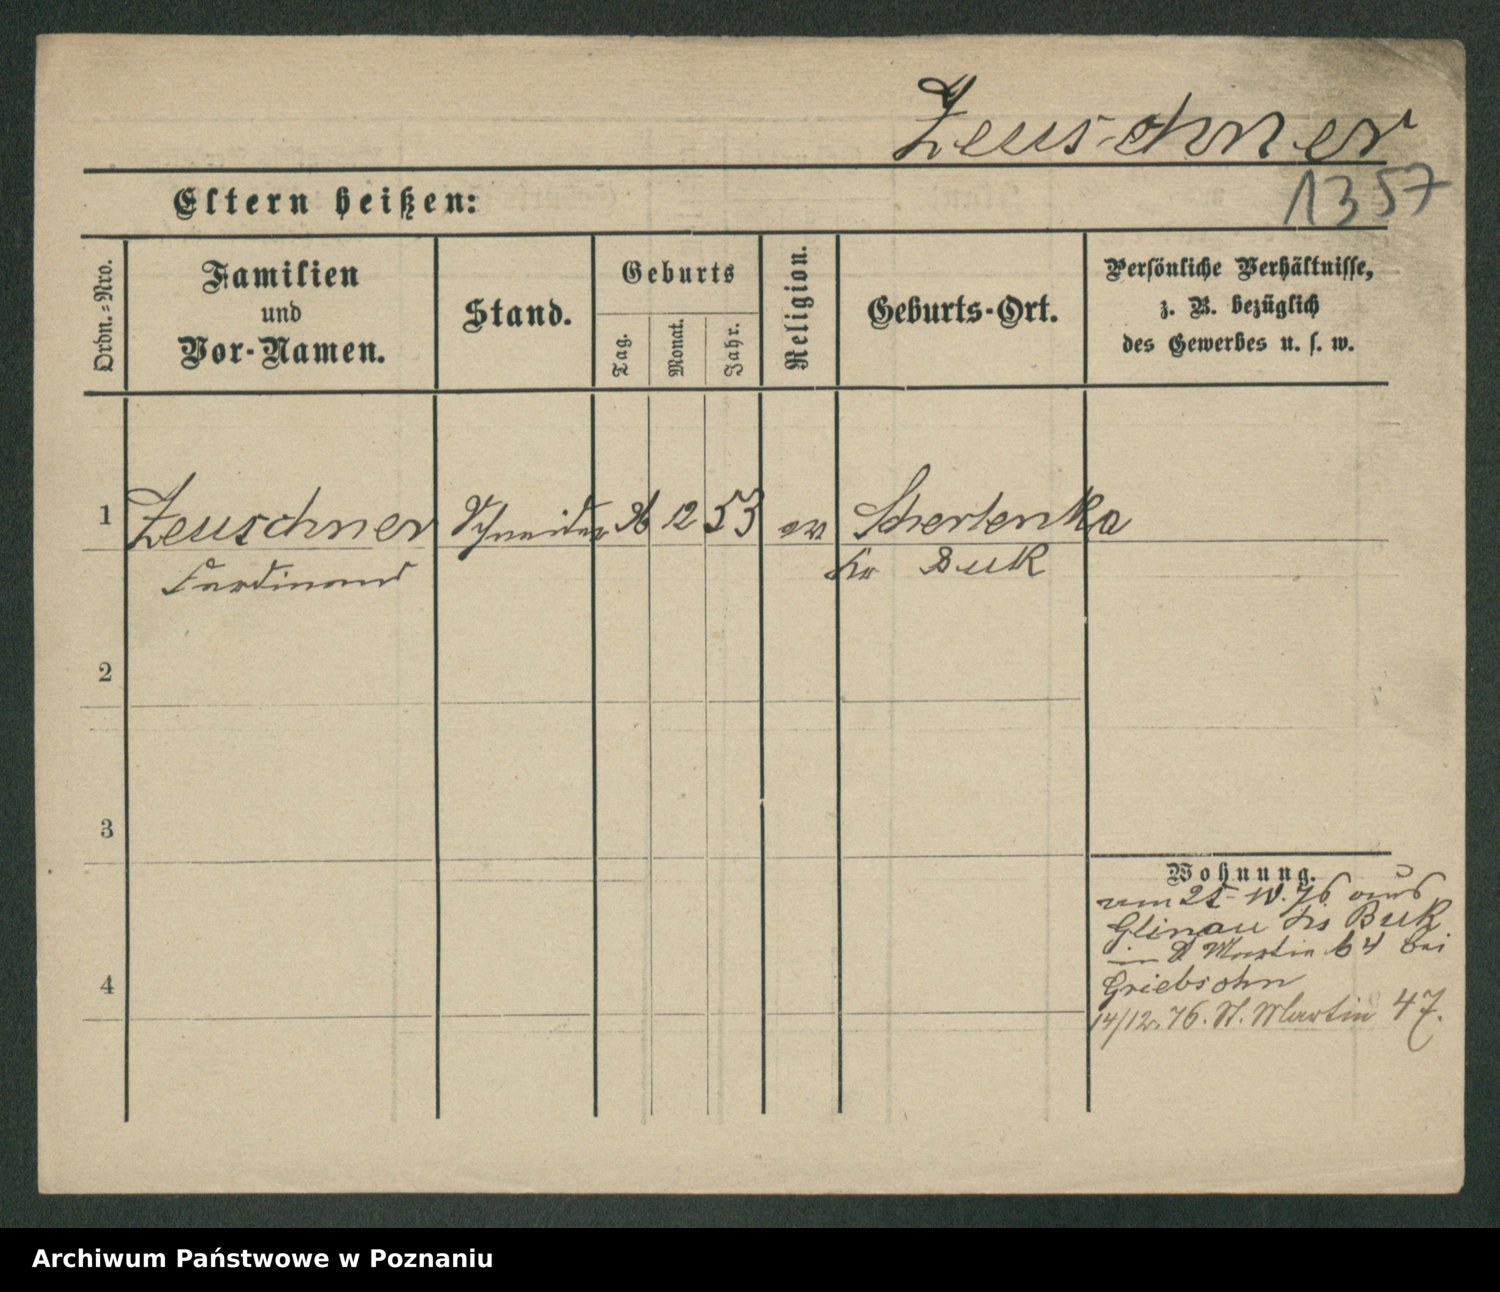 Zeuschner
1357
Eltern heißen:
Ordn.-Nro.
Familien
und
Vor-Namen.
Stand.
Geburts
Tag.
Monat.
Jahr.
Religion.
Geburts-Ort.
Persönliche Verhältnisse,
z. B. bezüglich
des Gewerbes u. s. w.
1 Zeuschner Schneider 26 12 53 ev Scherlenka
Ferdinand Kr Buk
2
3
Wohnung.
76 aus
Glinau Krs Buk
in St Martin 64 bei
Griebsohn
4
14/12. 76. St. Martin 47.
Archiwum Państwowe w Poznaniu